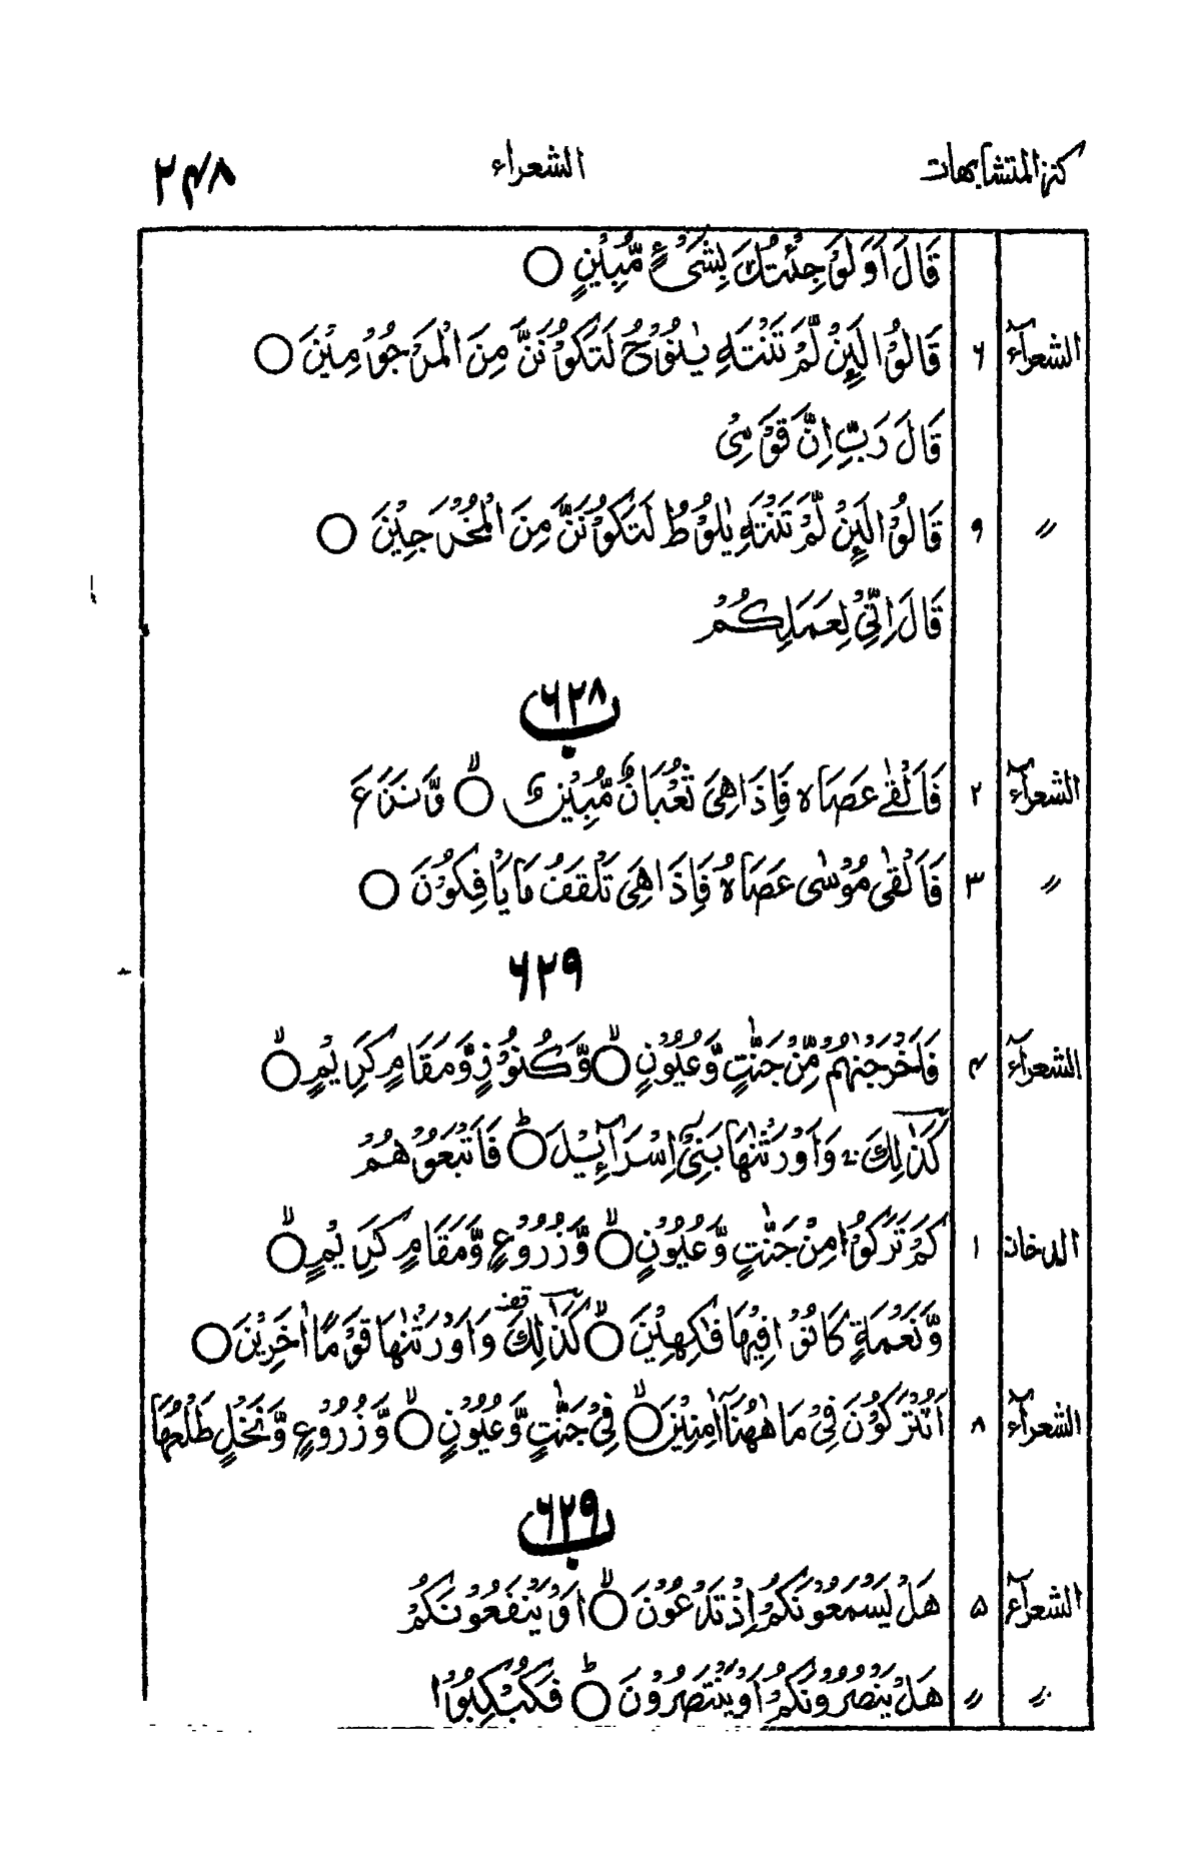 كنز المتشابهات الشعراء ۲۴۸
قَالَ اَوَلَوْ جِئْتُكَ بِشَیْءٍ مُّبِیْنٍ ○
الشعرآء ۶ قَالُوْا لَئِنْ لَّمْ تَنْتَهِ یٰنُوْحُ لَتَكُوْنَنَّ مِنَ الْمَرْجُوْمِیْنَ ○
قَالَ رَبِّ اِنَّ قَوْمِیْ
〃 ۹ قَالُوْا لَئِنْ لَّمْ تَنْتَهِ یٰلُوْطُ لَتَكُوْنَنَّ مِنَ الْمُخْرَجِیْنَ ○
قَالَ اِنِّیْ لِعَمَلِكُمْ
۶۲۸ ب
الشعرآء ۲ فَاَلْقٰی عَصَاهُ فَاِذَا هِیَ ثُعْبَانٌ مُّبِیْنٌ ○ وَّنَزَعَ
〃 ۳ فَاَلْقٰی مُوْسٰی عَصَاهُ فَاِذَا هِیَ تَلْقَفُ مَا یَاْفِكُوْنَ ○
۶۲۹
الشعرآء ۴ فَاَخْرَجْنٰهُمْ مِّنْ جَنّٰتٍ وَّعُیُوْنٍ ○ وَّكُنُوْزٍ وَّمَقَامٍ كَرِیْمٍ ○
كَذٰلِكَ وَاَوْرَثْنٰهَا بَنِیْۤ اِسْرَآئِیْلَ ○ فَاَتْبَعُوْهُمْ
الدخان ۱ كَمْ تَرَكُوْا مِنْ جَنّٰتٍ وَّعُیُوْنٍ ○ وَّزُرُوْعٍ وَّمَقَامٍ كَرِیْمٍ ○
وَّنَعْمَةٍ كَانُوْا فِیْهَا فٰكِهِیْنَ ○ كَذٰلِكَ قف وَاَوْرَثْنٰهَا قَوْمًا اٰخَرِیْنَ ○
الشعرآء ۸ اَتُتْرَكُوْنَ فِیْ مَا هٰهُنَاۤ اٰمِنِیْنَ ○ فِیْ جَنّٰتٍ وَّعُیُوْنٍ ○ وَّزُرُوْعٍ وَّنَخْلٍ طَلْعُهَا
۶۲۹ ب
الشعرآء ۵ هَلْ یَسْمَعُوْنَكُمْ اِذْ تَدْعُوْنَ ○ اَوْ یَنْفَعُوْنَكُمْ
〃 〃 هَلْ یَنْصُرُوْنَكُمْ اَوْ یَنْتَصِرُوْنَ ○ فَكُبْكِبُوْا